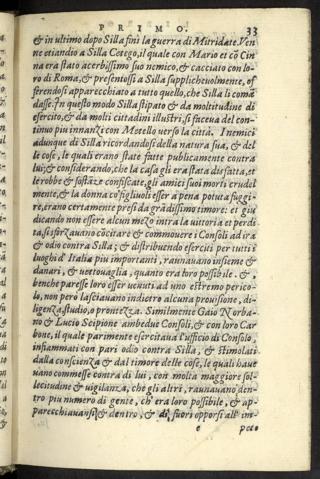 PRIMO. 33
& in ultimo dopo Silla finì la guerra di Mitridate. Ven
ne etiandio a Silla Cetego, il quale con Mario et cõ Cin
na era stato acerbissimo suo nemico, & cacciato con lo-
ro di Roma, & presentossi a Silla supplicheuolmente, of
ferendosi apparecchiato a tutto quello, che Silla li comã
dasse. In questo modo Silla stipato & da moltitudine di
esercito, & da molti cittadini illustri, si faceua del con-
tinuo piu innanzi con Metello verso la città. I nemici
adunque di Silla ricordandosi della natura sua, & del
le cose, le quali erano state fatte publicamente contra
lui; & considerando, che la casa gli era stata disfatta, et
le robbe & sostãze confiscate, gli amici suoi morti crudel
mente, & la donna co' figliuoli esser a pena potuta fuggi-
re, erano certamente presi da grãdissimo timore; et giu
dicando non essere alcun mezo intra la vittoria et perdi
ta, si sforzauano cõcitare & commouere i Consoli ad ira
& odio contra Silla; & distribuendo eserciti per tutti i
luoghi d' Italia piu importanti, raunauano insieme &
danari, & vettouaglia, quanto era loro possibile. &,
benche paresse loro esser venuti ad uno estremo perico-
lo, non però lasciauano indietro alcuna prouisione, di-
ligenza, studio, o prontezza. Similmente Gaio Norba-
no & Lucio Scipione ambedue Consoli, & con loro Car
bone, il quale parimente esercitaua l'ufficio di Consolo,
infiammati con pari odio contra Silla, & stimolati
dalla conscienza & dal timore delle cose, le quali haue
uano commesse contra di lui, con molta maggiore sol-
lecitudine & vigilanza, che gli altri, raunauano den-
tro piu numero di gente, ch' era loro possibile, & ap-
parecchiauansi & dentro, & di fuori opporsi all' im-
e peto